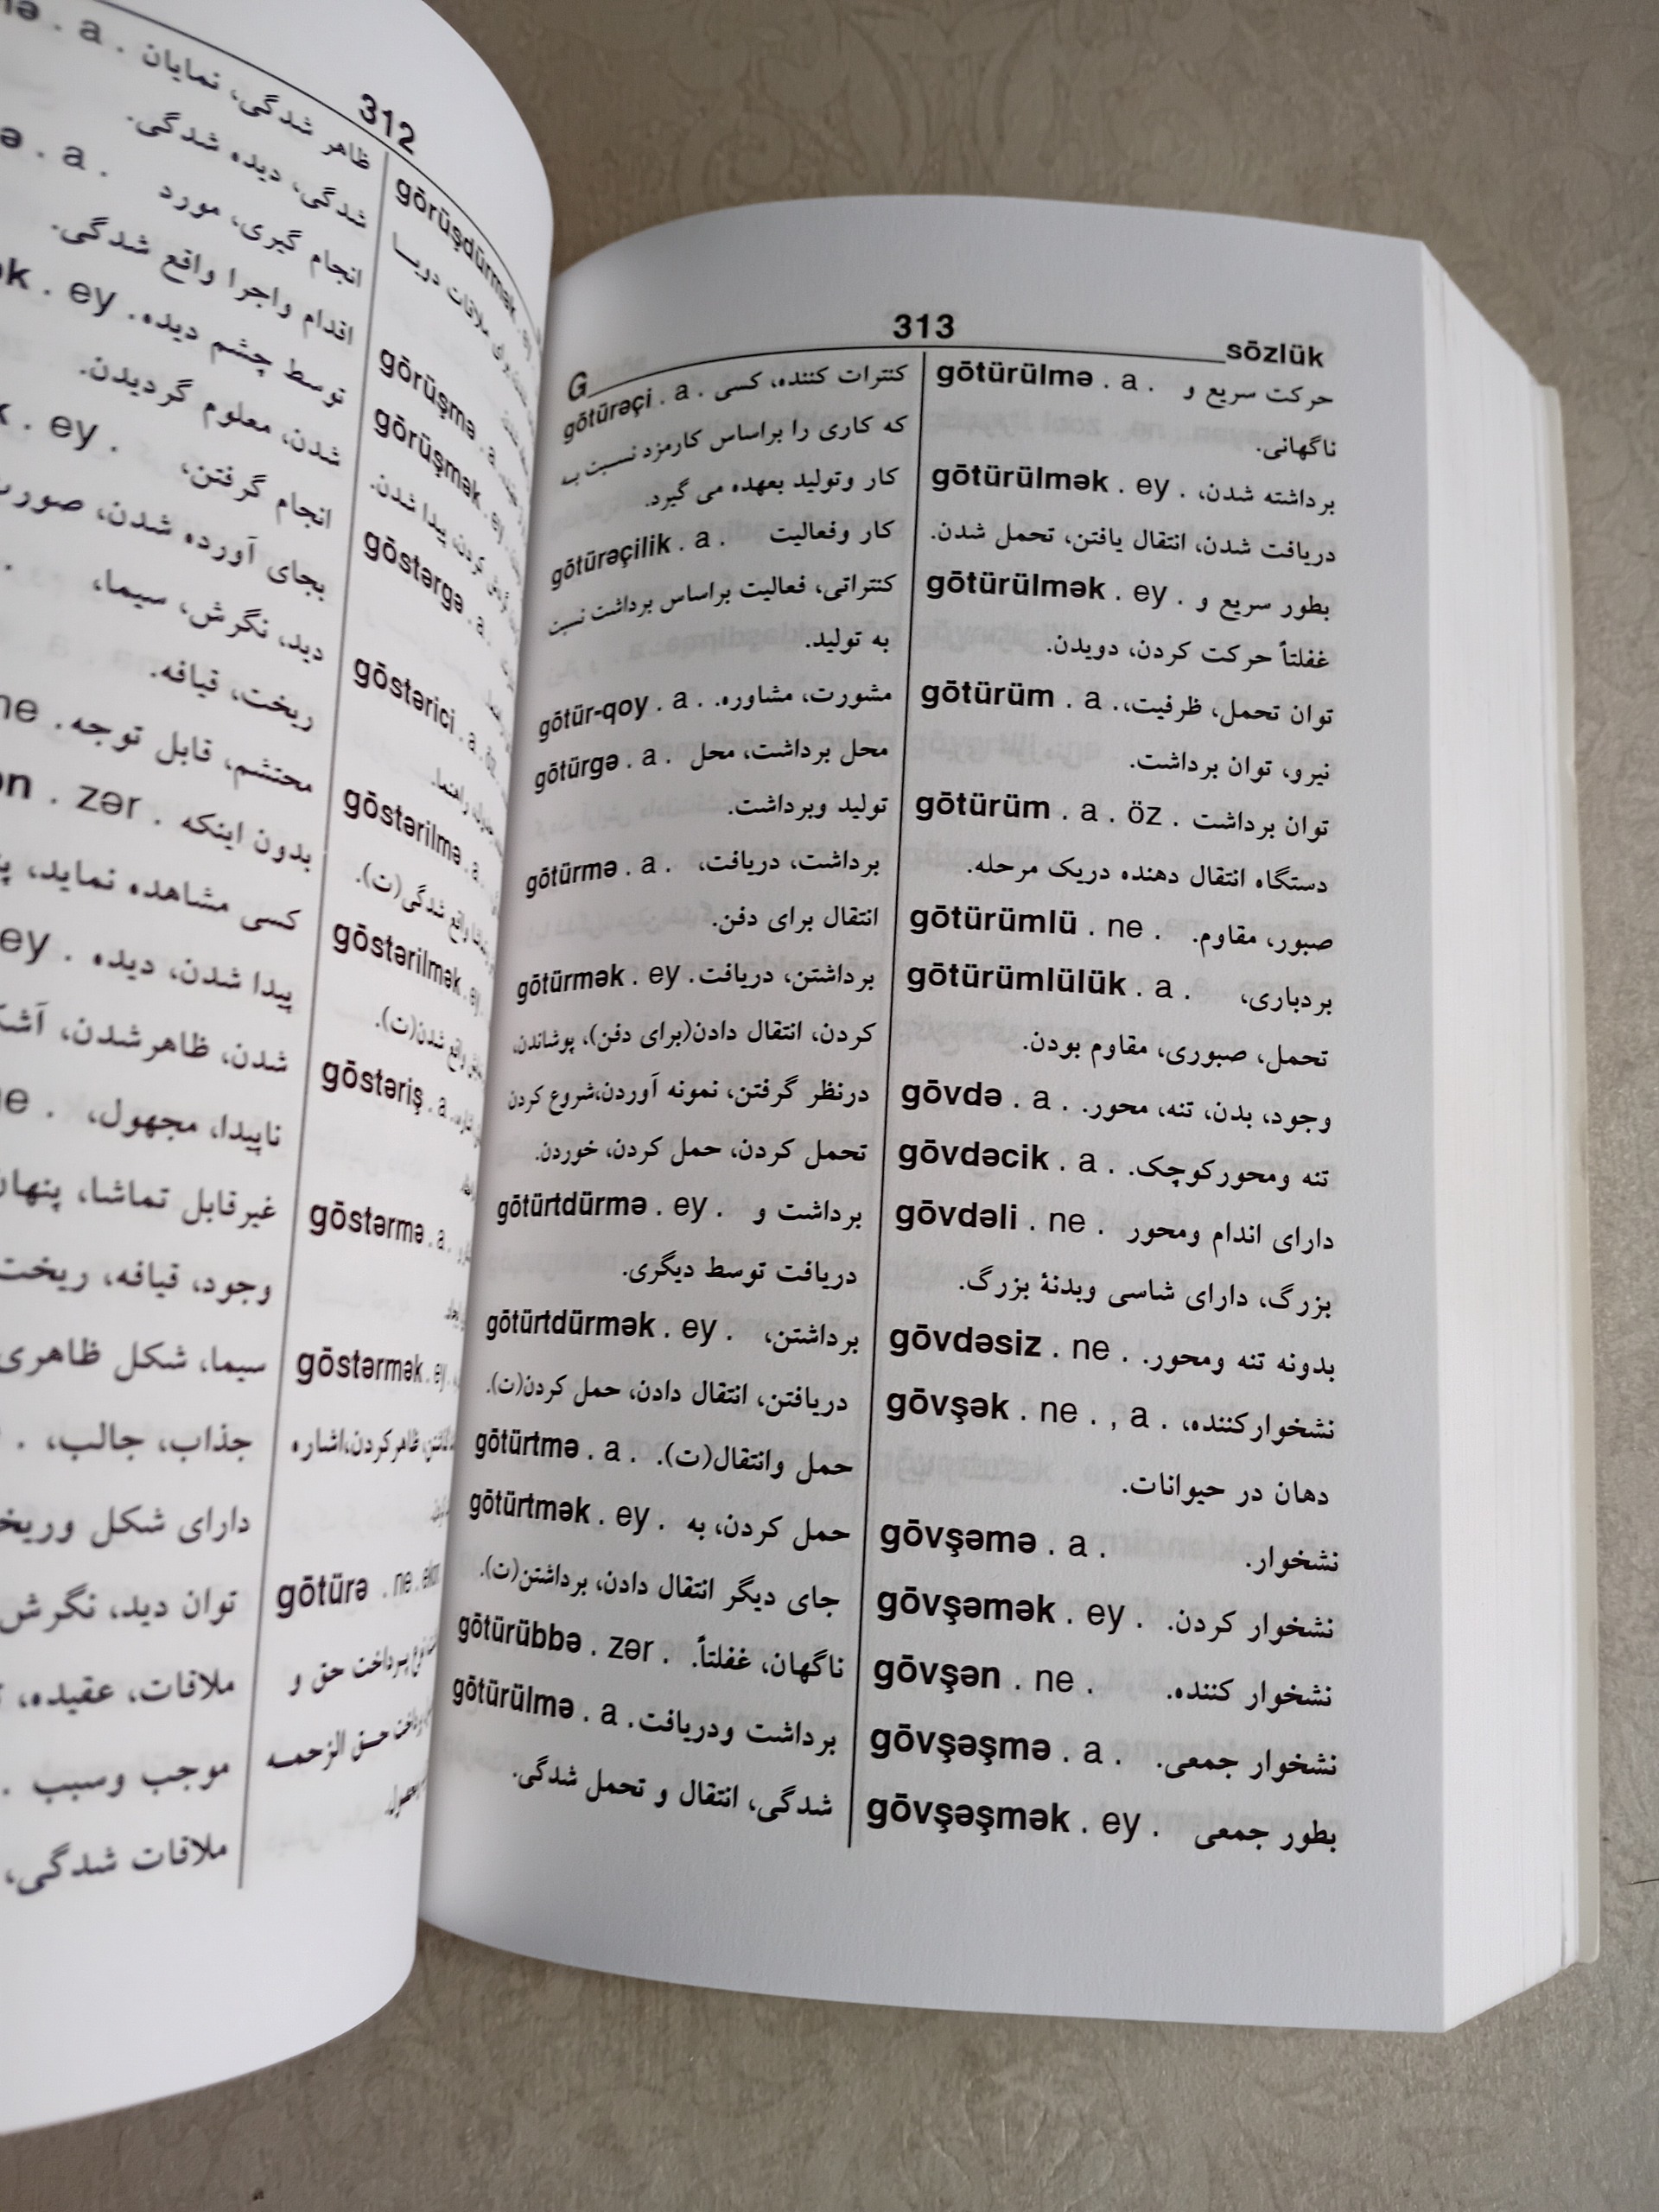 312
ظاهر شدگی، نمایان . a .
شدگی، دیده شدگی.
انجام گیری، مورد . a .
اقدام واجرا واقع شدگی.
توسط چشم دیده. ey .
شدن، معلوم گردیدن.
انجام گرفتن، . ey .
بجای آورده شدن،
دید، نگرش، سیما،
ریخت، قیافه.
محتشم، قابل توجه.
بدون اینکه . zər .
کسی مشاهده نماید،
پیدا شدن، دیده . ey
شدن، ظاهرشدن،
ناپیدا، مجهول،
غیرقابل تماشا،
وجود، قیافه، ریخت
سیما، شکل ظاهری
جذاب، جالب،
دارای شکل
توان دید، نگرش
ملاقات، عقیده،
موجب وسبب .
ملاقات شدگی،
görüşdürmək .
görüşmə . a
görüşmək . ey
کردن، پیدا شدن.
göstərgə . a
göstərici . a . öz
göstərilmə . a
واقع شدگی(ت).
göstərilmək . ey
واقع شدن(ت).
göstəriş . a
göstərmə . a .
göstərmək . ey
ظاهرکردن،اشاره
götürə . ne . ekon
پرداخت حق و
حـق الزحمـه
313
G
sōzlük
gōtürəçi . a . کنترات کننده، کسی
که کاری را براساس کارمزد نسـبت بـه
کار وتولید بعهده می گیرد.
gōtürəçilik . a . کار وفعالیت
کنتراتی، فعالیت براساس برداشت نسبت
به تولید.
gōtür-qoy . a . مشورت، مشاوره.
gōtürgə . a . محل برداشت، محل
تولید وبرداشت.
gōtürmə . a . برداشت، دریافت،
انتقال برای دفن.
gōtürmək . ey . برداشتن، دریافت
کردن، انتقال دادن(برای دفن)، پوشاندن،
درنظر گرفتن، نمونه آوردن،شروع کردن
تحمل کردن، حمل کردن، خوردن.
gōtürtdürmə . ey . برداشت و
دریافت توسط دیگری.
gōtürtdürmək . ey . برداشتن،
دریافتن، انتقال دادن، حمل کردن(ت).
gōtürtmə . a . حمل وانتقال(ت).
gōtürtmək . ey . حمل کردن، به
جای دیگر انتقال دادن، برداشتن(ت).
gōtürübbə . zər . ناگهان، غفلتاً.
gōtürülmə . a . برداشت ودریافت
شدگی، انتقال و تحمل شدگی.
gōtürülmə . a . حرکت سریع و
ناگهانی.
gōtürülmək . ey . برداشته شدن،
دریافت شدن، انتقال یافتن، تحمل شدن.
gōtürülmək . ey . بطور سریع و
غفلتاً حرکت کردن، دویدن.
gōtürüm . a . توان تحمل، ظرفیت،
نیرو، توان برداشت.
gōtürüm . a . öz . توان برداشت
دستگاه انتقال دهنده دریک مرحله.
gōtürümlü . ne . صبور، مقاوم.
gōtürümlülük . a . بردباری،
تحمل، صبوری، مقاوم بودن.
gōvdə . a . وجود، بدن، تنه، محور.
gōvdəcik . a . تنه ومحورکوچک.
gōvdəli . ne . دارای اندام ومحور
بزرگ، دارای شاسی وبدنۀ بزرگ.
gōvdəsiz . ne . بدونه تنه ومحور.
gōvşək . ne . , a . نشخوارکننده،
دهان در حیوانات.
gōvşəmə . a . نشخوار.
gōvşəmək . ey . نشخوار کردن.
gōvşən . ne . نشخوار کننده.
gōvşəşmə . a . نشخوار جمعی.
gōvşəşmək . ey . بطور جمعی